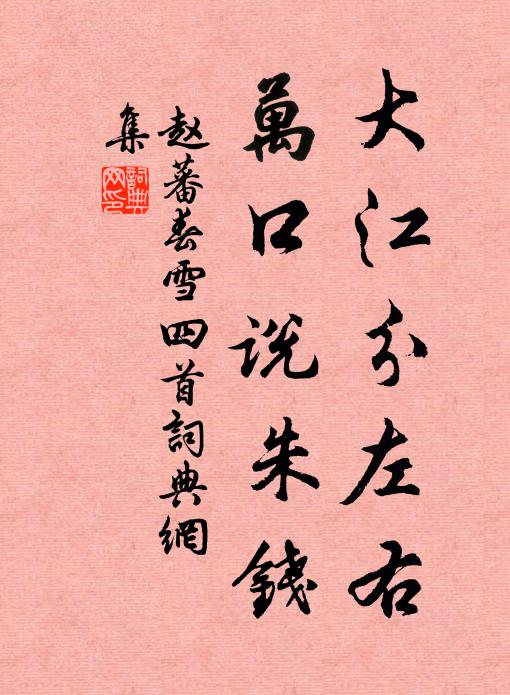 大江分左右
萬口说朱錢
赵蕃春雪四首詞典網
集
詞典网印